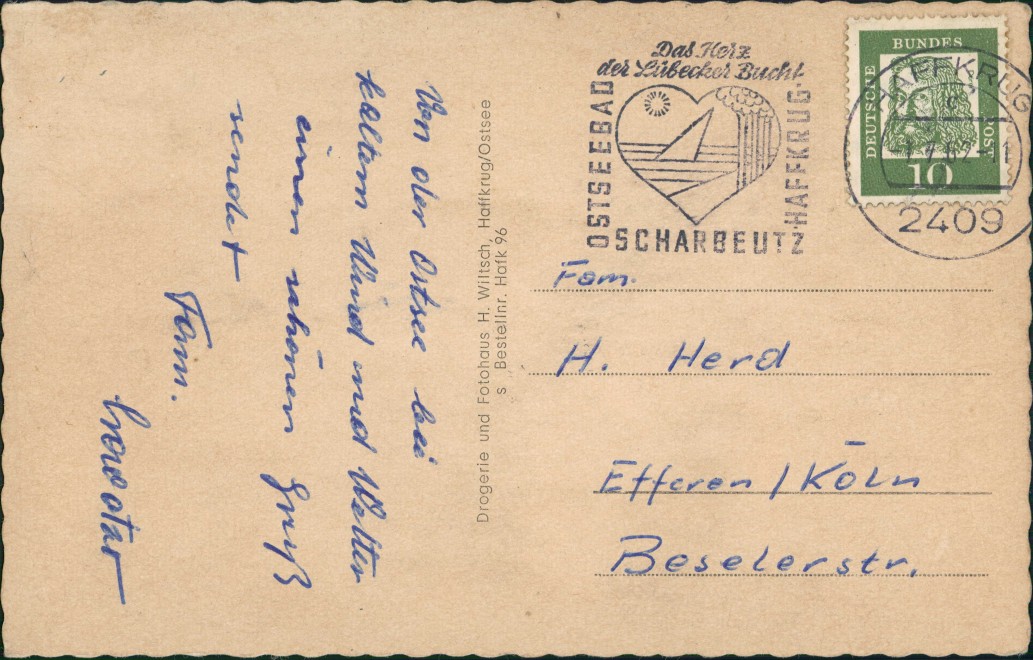 Von der Ostsee bei
kaltem Wind und Wetter
einen schönen Gruß
sendet
Fam.
Drogerie und Fotohaus H. Wiltsch, Haffkrug/Ostsee
s Bestellnr. Hafk 96
Das Herz
der Lübecker Bucht
OSTSEEBAD
HAFFKRUG
SCHARBEUTZ
DEUTSCHE
BUNDES
POST
10
HAFFKRUG
c
2409
Fam.
H. Herd
Efferen / Köln
Beselerstr.